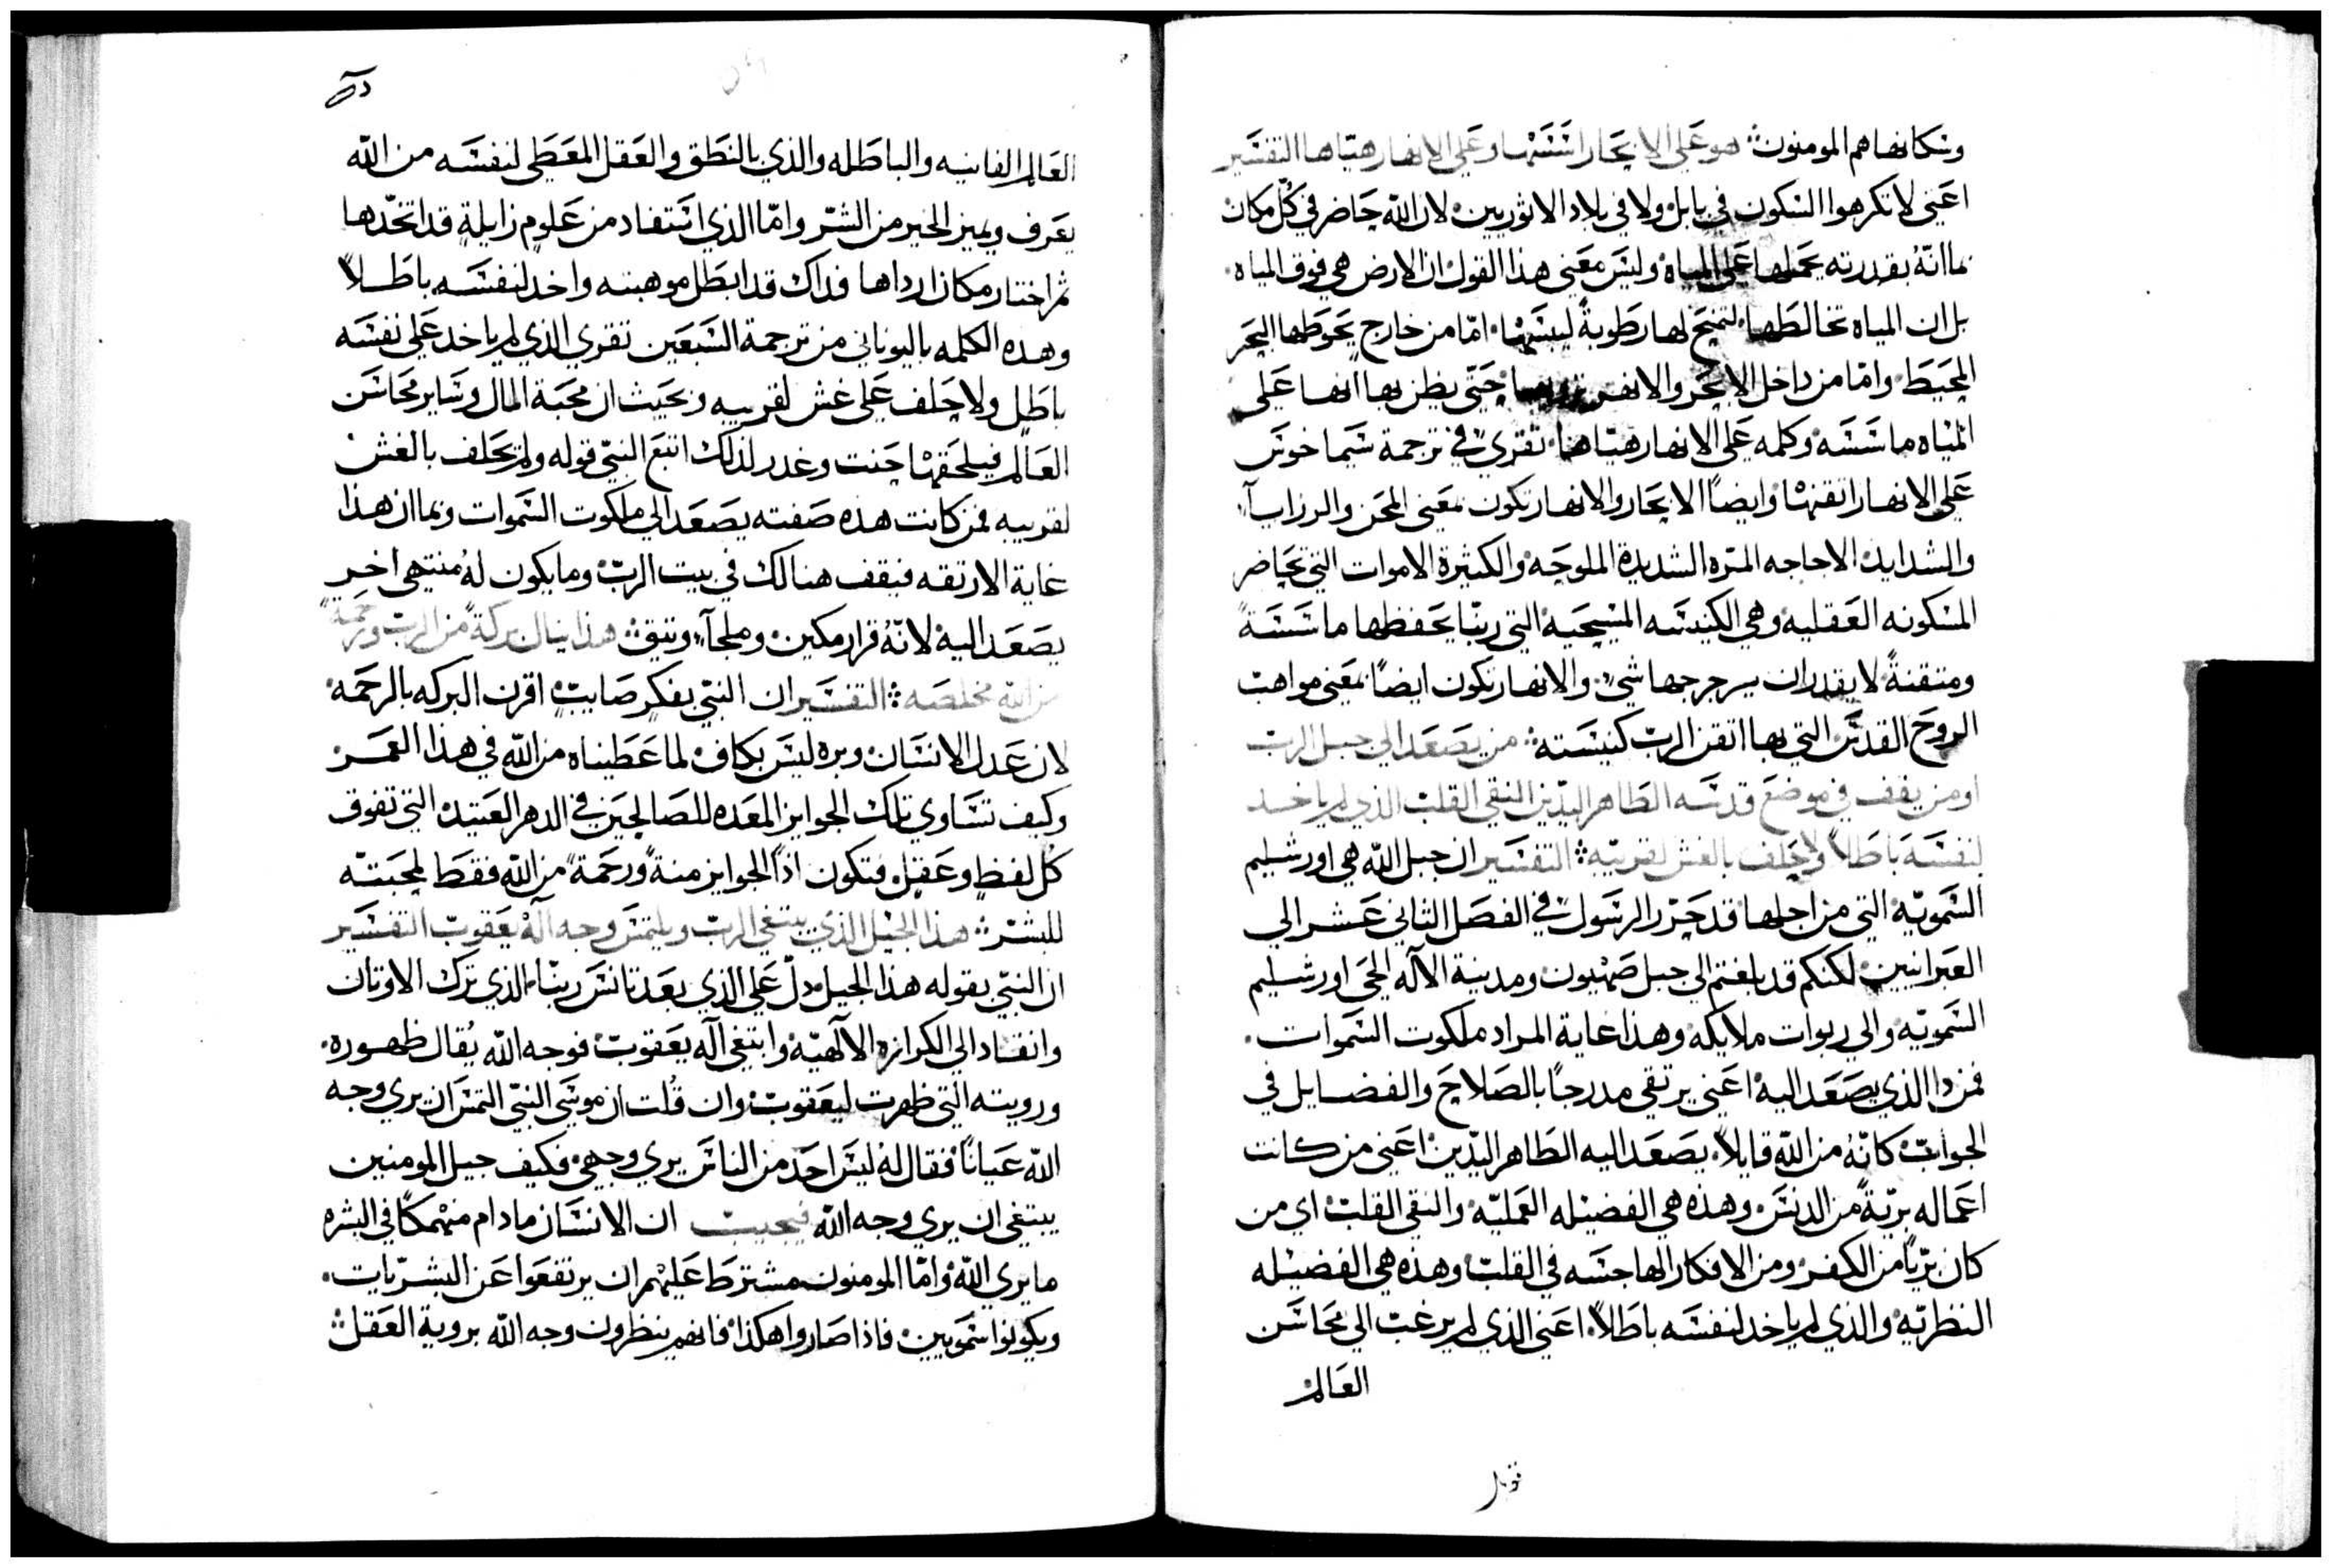 وسكانها هم المومنون ۞ هو على الابحار اسسها وعلى الانهار هيّاها التفسير
اعني لا تكرهوا السكون في بابل ولا في بلاد الاثوريين لان الله حاضر في كل مكان
بما انّهُ بقدرته يحملها على المياه وليس معنى هذا القول ان الارض هي فوق المياه
بل ان المياه تخالطها لتمنح لها رطوبةً ليبسها اما من خارج يحوطها البحر
المحيط وامّا من داخل الابحر والانهر حتى يظن بها انها على
المياه ماسسه وكلمه على الانهار هيّاها تقرى في ترجمة سيماخوس
على الانهار اتقنها وايضاً الابحار والانهار تكون بمعنى المحن والرزايآ
والشدايد الاجاجه المرّه الشديدة الملوحه والكثيرة الاموات التي تحاصر
المسكونه العقليه وهي الكنيسه المسيحيه التي ربنا يحفظها ماسسةً
ومتقنةً لا يقدر ان يرجرجها شي والانهار تكون ايضاً بمعنى مواهب
الروح القدس التي بها اتقن الرب كنيسته ۞ من يصعد الى جبل الرب
او من يقف في موضع قدسه الطاهر اليدين النقي القلب الذي لم ياخد
لنفسه باطلاً ولا حلف بالغش لقريبه ۞ التفسير ان جبل الله هي اورشليم
السمويّه التي من اجلها قد حرّر الرسول في الفصل الثاني عشر الى
العبرانيين لكنكم قد بلغتم الى جبل صهيون ومدينة الاله الحي اورشليم
السمويّه والى ربوات ملايكه وهذا غاية المراد ملكوت السموات
فمن دا الذي يصعد اليه اعني يرتقي مدرجاً بالصلاح والفضايل في
الجواب كانّهُ من اللّه قايلاً يصعد اليه الطاهر اليدين اعني من كانت
اعماله بريّةً من الدنس وهذه هي الفضيله العمليّه والنقي القلب اي من
كان بريّاً من الكفر ومن الافكار الهاجسه في القلب وهذه هي الفضيله
النظريّه والذي لم ياخد لنفسه باطلاً اعني الذي لم يرغب الى محاسن
العالم
العالم الفانيه والباطله والذي بالنطق والعقل المعطى لنفسه من اللّه
يعرف ويميز الخير من الشر وامّا الذي استفاد من علومٍ زايلةٍ قد اتخدها
ثم اختار مكان ارداها فداك قد ابطل موهبته واخد لنفسه باطلاً
وهده الكلمه باليوناني من ترجمة السبعين تقرى الذي لم ياخد على نفسه
باطل ولا حلف على غش لقريبه وبحيث ان محبة المال وساير محاسن
العالم فيلحقها حنث وغدر لذلك اتبع النبي قوله ولم يحلف بالغش
لقريبه فمن كانت هذه صفته يصعد الى ملكوت السموات وبما ان هذا
غاية الارتقه فيقف هنالك في بيت الرب وما يكون لهُ منتهى اخر
يصعد اليه لانّهُ قرار مكين وملجآ وثيق ۞ هذا ينال بركةً من الرب ورحمةً
من اللّه مخلصه ۞ التفسير ان النبي بفكرٍ صايبٍ اقرن البركه بالرحمه
لان عدل الانسان وبره ليس بكاف لما عطيناه من اللّه في هذا العمر
وكيف تساوي تلك الجوايز المعده للصالحين في الدهر العتيد التي تفوق
كُل لفظٍ وعقل فتكون اذاً الجوايز منةً ورحمةً من اللّه فقط لمحبتّه
للبشر ۞ هذا الجيل الذي يبتغي الرب ويلتمس وجه آله يعقوب التفسير
ان النبي بقوله هذا الجيل دلّ على الذي بعد تانس ربنا الذي ترك الاوتان
وانقاد الى الكرازه الالهيّه وابتغى آله يعقوب فوجه اللّه يُقال ظهوره
ورويته التي ظهرت ليعقوب وان قُلت ان موسى النبي التمس ان يرى وجه
اللّه عياناً فقال له ليس احد من الناس يرى وجهي فكيف جيل المومنين
يبتغي ان يرى وجه اللّه فيجيب ان الانسان ما دام منهمكاً في البشره
ما يرى اللّه وامّا المومنون مشترط عليهم ان يرتفعوا عن البشريّات
ويكونوا سمويين فاذا صاروا هكذا فانهم ينظرون وجه اللّه بروية العقل ۞